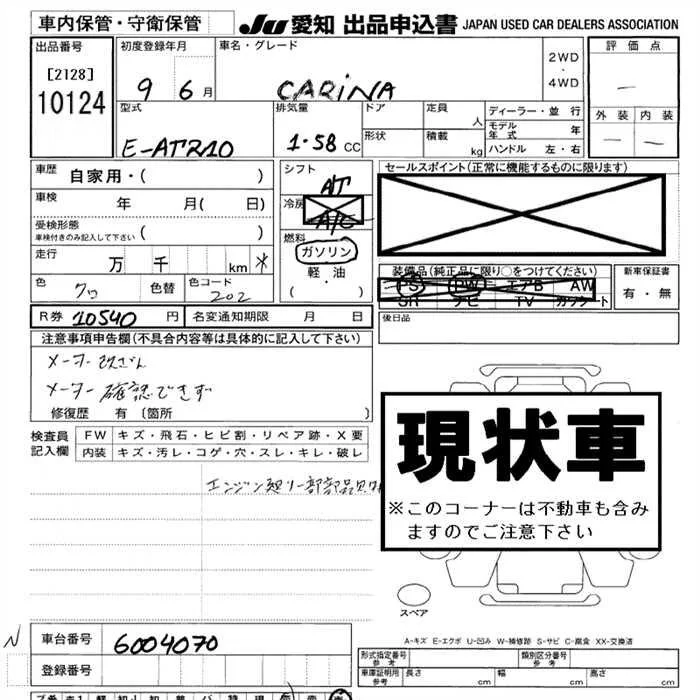 車内保管・守衛保管
JU 愛知 出品申込書 JAPAN USED CAR DEALERS ASSOCIATION
出品番号
[2128]
10124
初度登録年月
9 6月
車名・グレード
CARINA
2WD
・
4WD
評価点
—
外装 内装
— —
型式
E-AT210
排気量
1.58 CC
ドア
形状
定員 人
積載 kg
ディーラー・並行
モデル年式 年
ハンドル 左・右
車歴
自家用・( )
車検 年 月( 日)
受検形態
車検付きのみ記入して下さい ( )
走行 万 千 km *
色 クロ 色替 色コード 202
シフト
AT
冷房 A/C
燃料
ガソリン
軽・油
( ・ )
セールスポイント(正常に機能するものに限ります)
装備品(純正品に限り○をつけてください)
PS PW エアB AW
SR ナビ TV カワシート
新車保証書
有・無
R券 10540 円 名変通知期限 月 日
後日品
注意事項申告欄(不具合内容等は具体的に記入して下さい)
メーター改ざん
メーター確認できず
修復歴 有〔箇所 〕
検査員記入欄
FW キズ・飛石・ヒビ割・リペア跡・X要
内装 キズ・汚レ・コゲ・穴・スレ・キレ・破レ
現状車
※このコーナーは不動車も含み
ますのでご注意下さい
スペア
A-キズ E-エクボ U-凹み W-補修跡 S-サビ C-腐食 XX-交換済
N
車台番号 6004070
登録番号
形式指定番号 参考
類別区分番号 参考
車庫証明用 参考 長さ cm 幅 cm 高さ cm